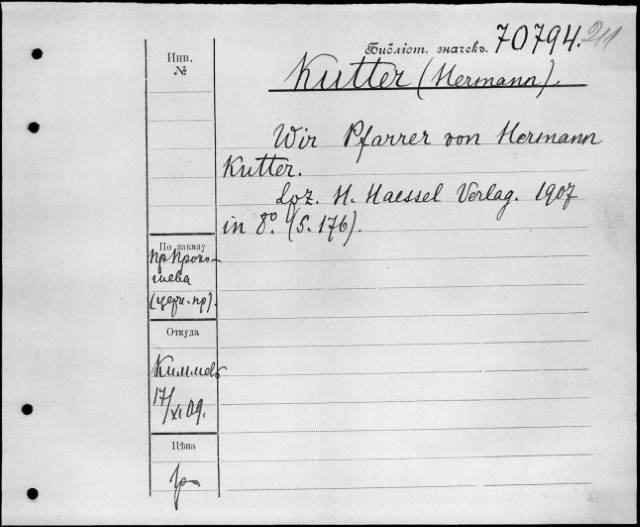 Библіот. значекъ. 70794. 211
Kutter (Hermann).
Инв.
№
Wir Pfarrer von Hermann
Kutter.
Lpz. H. Haessel Verlag. 1907
in 8º. (S. 176).
По заказу
пр Проко-
шева
(церк. пр).
Откуда
Киммель
17/XI 09.
Цѣна